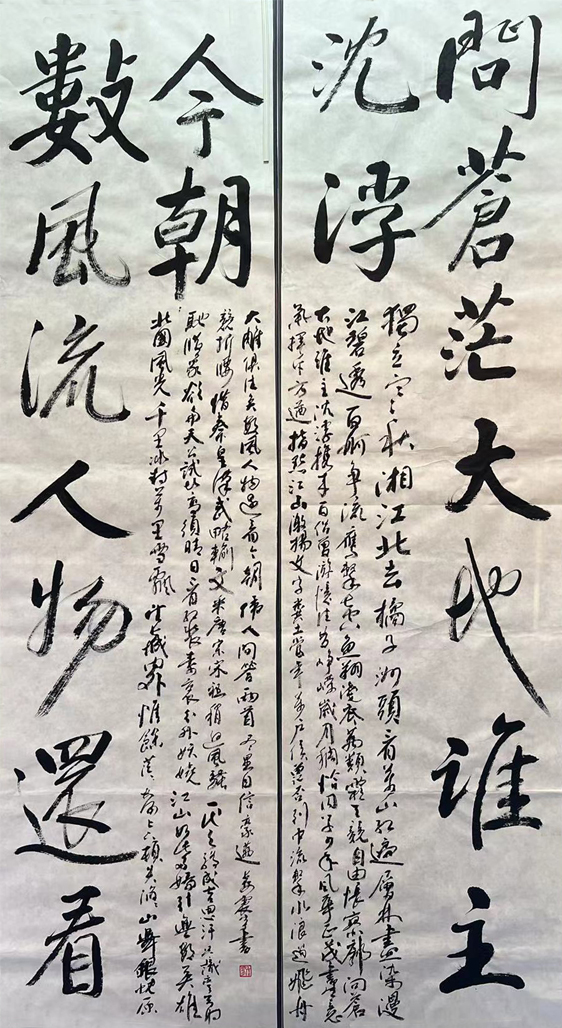 問蒼茫大地誰主
沈浮
獨立寒秋湘江北去橘子洲頭看萬山紅遍層林盡染漫
江碧透百舸爭流鷹擊長空魚翔淺底萬類霜天競自由悵寥廓問蒼
大地誰主沈浮攜來百侶曾遊憶往昔崢嶸歲月稠恰同學少年風華正茂書生意
氣揮斥方遒指點江山激揚文字糞土當年萬戶侯曾記否到中流擊水浪遏飛舟
數風流人物還看
今朝
北國風光千里冰封萬里雪飄望長城內外惟餘莽莽大河上下頓失滔滔山舞銀蛇原
馳蠟象欲與天公試比高須晴日看紅裝素裹分外妖嬈江山如此多嬌引無數英雄
競折腰惜秦皇漢武略輸文采唐宗宋祖稍遜風騷一代天驕成吉思汗只識彎弓射
大雕俱往矣數風流人物還看今朝偉人問答兩首自信豪邁書